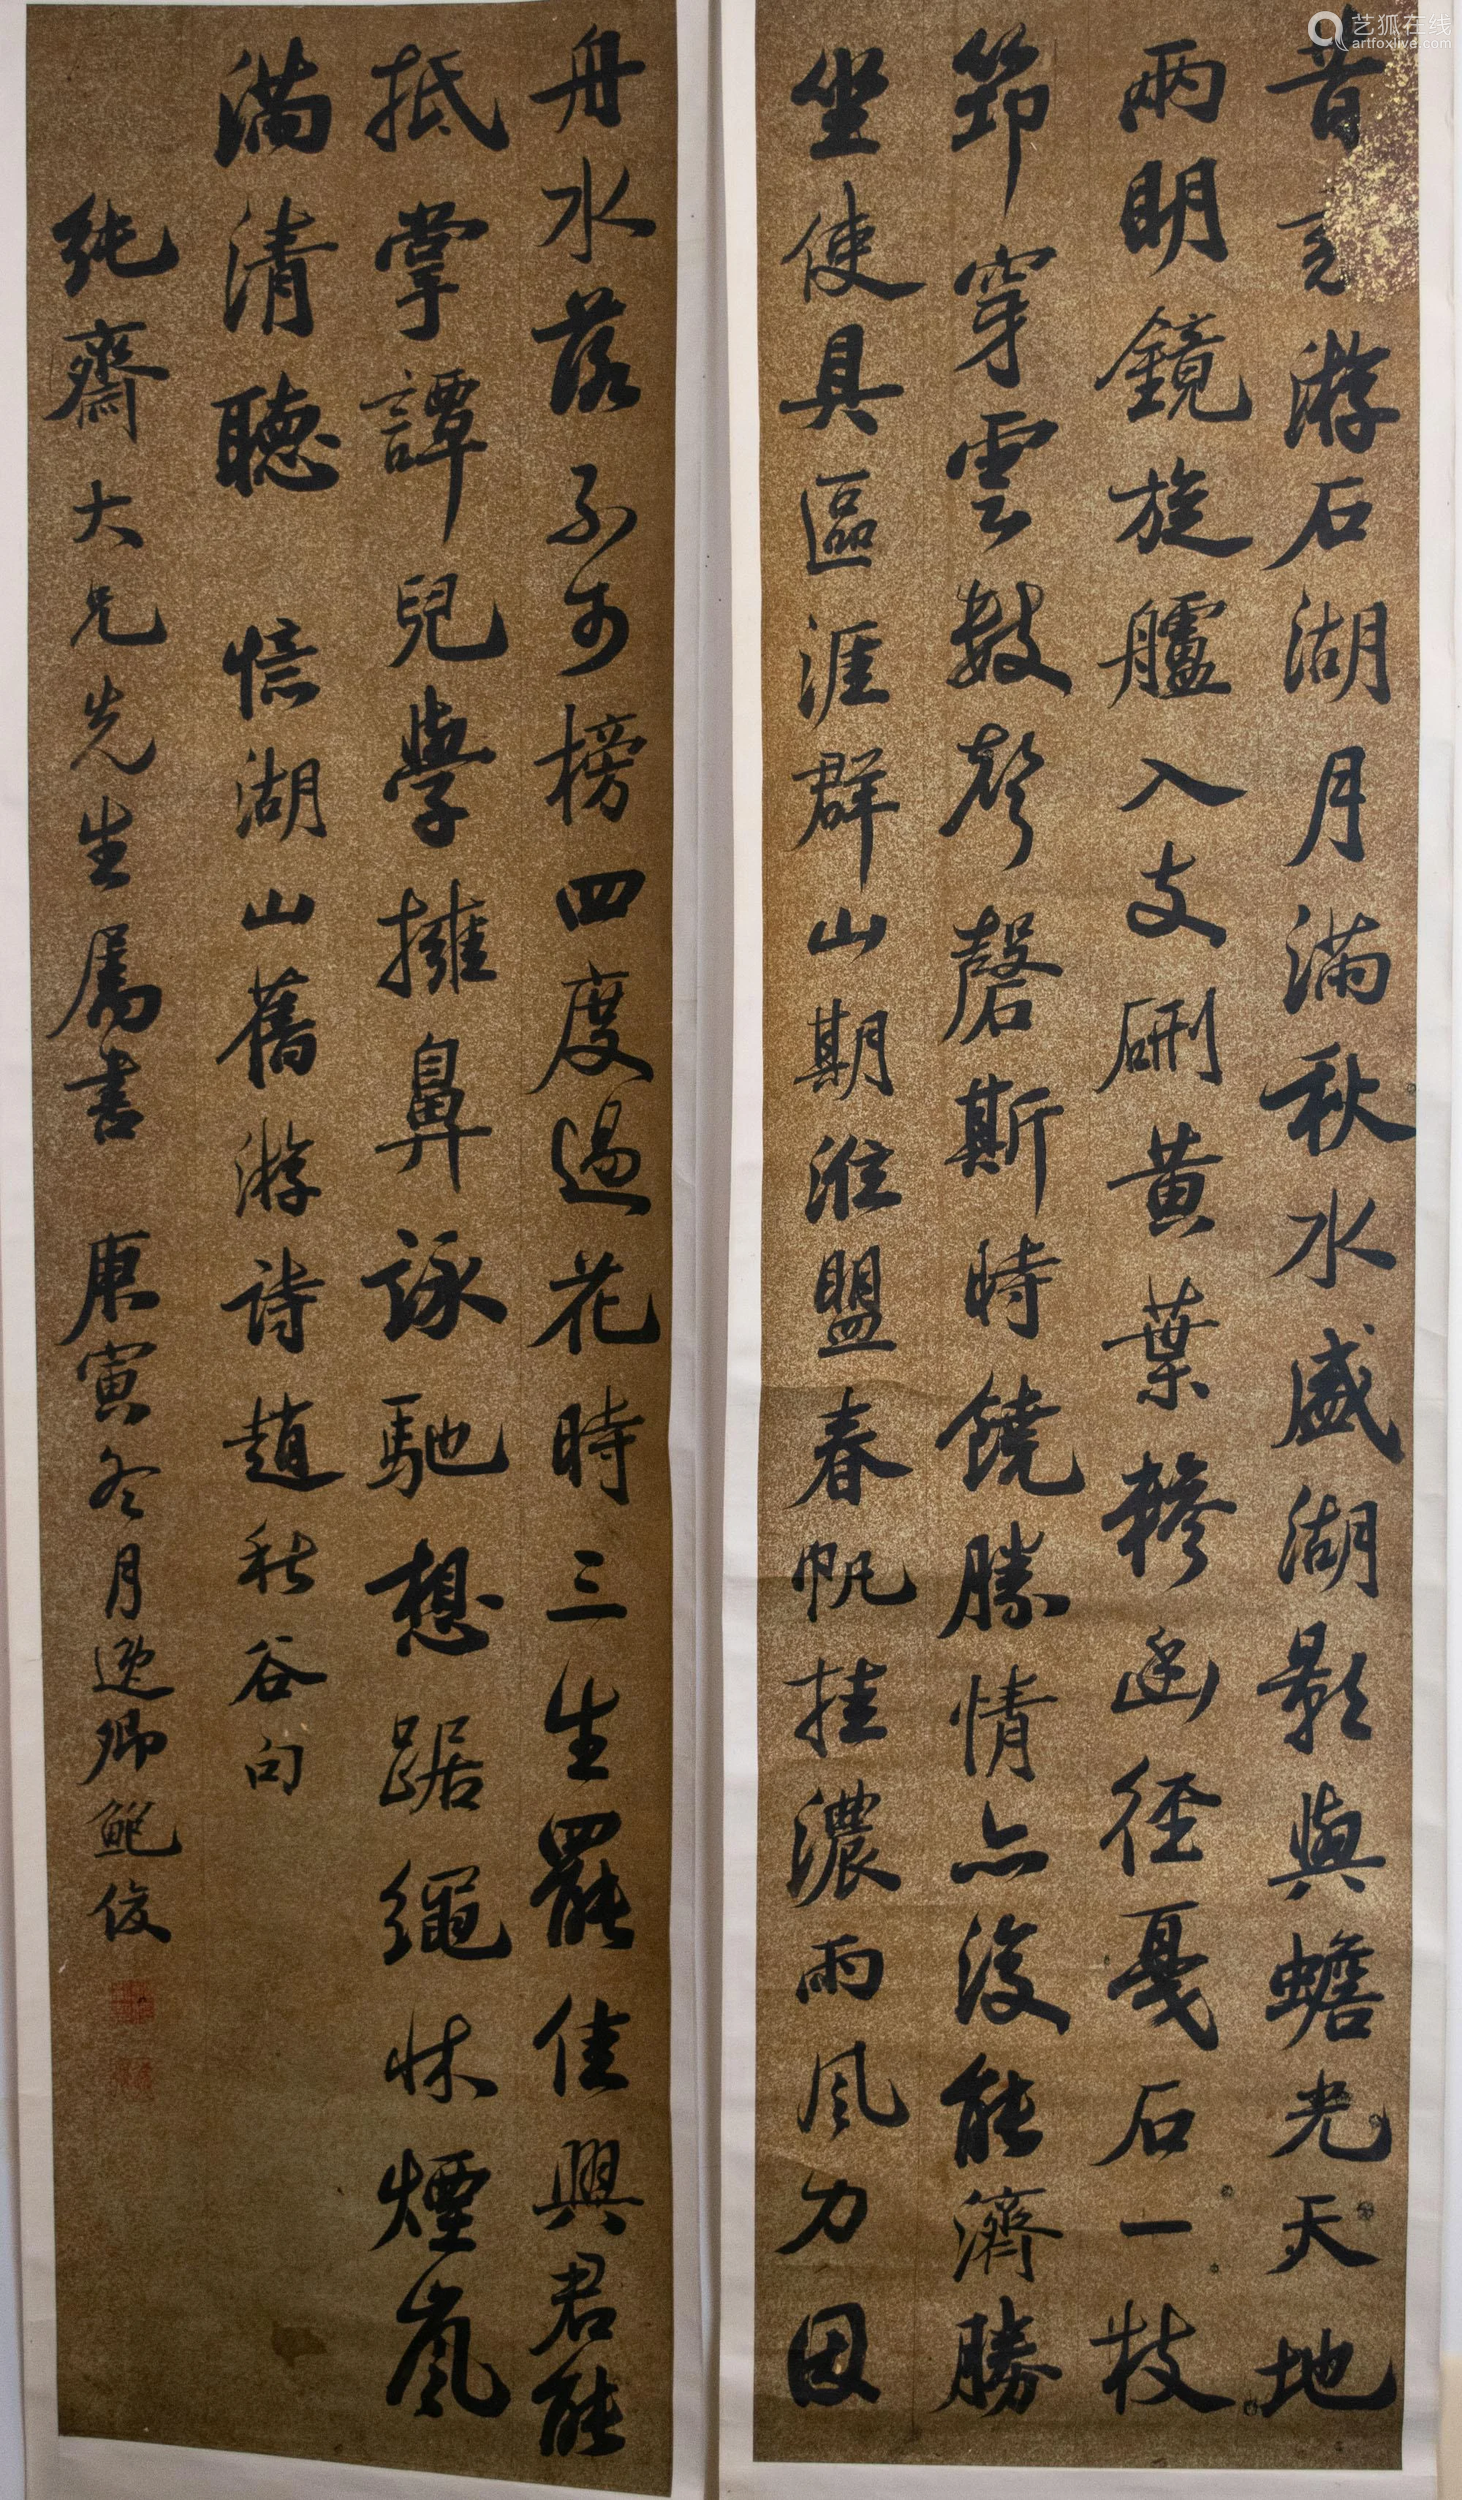 昔我游石湖月滿秋水盛湖影與蟾光天地
兩明鏡旋艫入支硎黃葉糝幽徑戛石一枝
筇穿雲數聲磬斯時饒勝情亦復能濟勝
坐使具區涯群山期淮盟春帆挂濃雨風力因
舟水落不可榜四度過花時三生罷佳興君能
抵掌譚兒學擁鼻詠馳想踞繩床煙嵐
滿清聽 愔湖山舊游詩趙秋谷句
純齋大兄先生屬書 庚寅冬月逸卿鮑俊
艺狐在线
artfoxlive.com